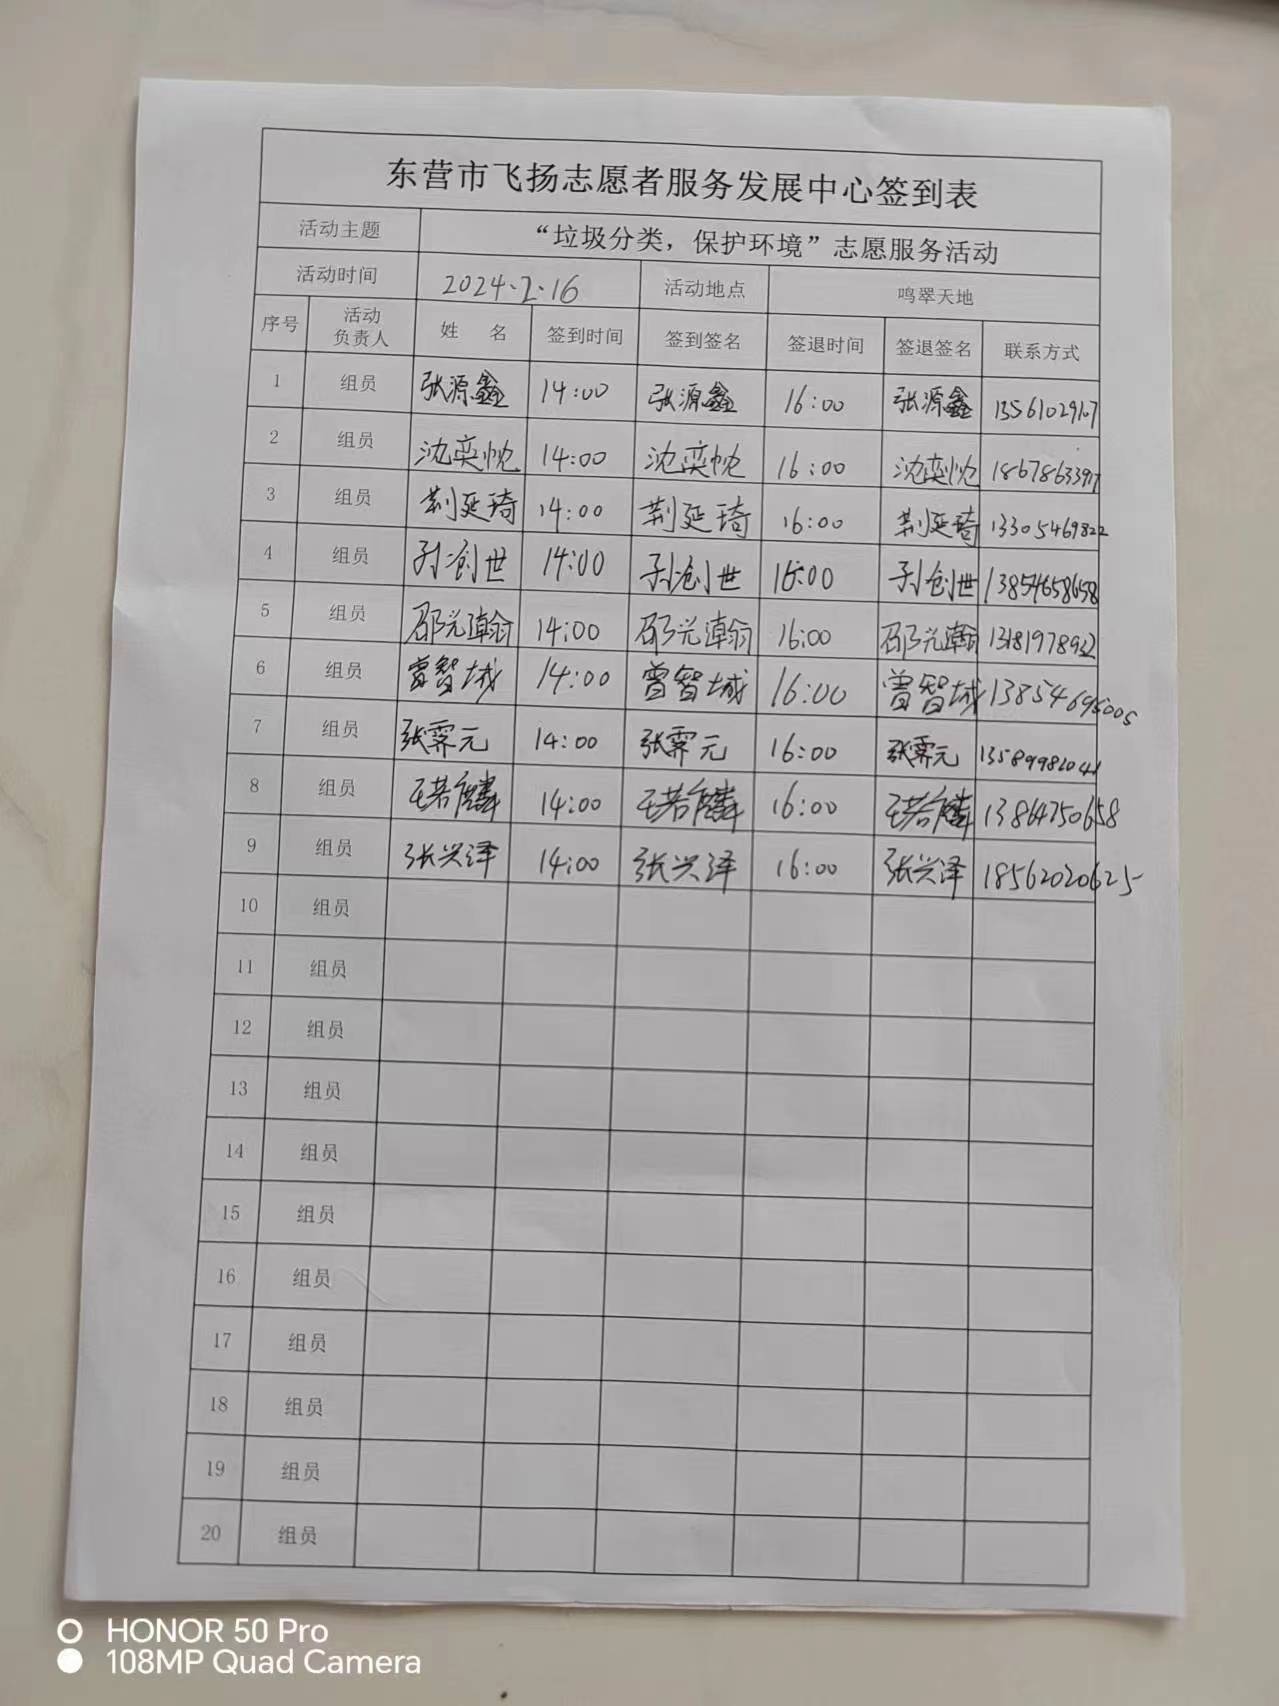 东营市飞扬志愿者服务发展中心签到表
活动主题 “垃圾分类，保护环境”志愿服务活动
活动时间 2024.2.16 活动地点 鸣翠天地
序号 活动负责人 姓 名 签到时间 签到签名 签退时间 签退签名 联系方式
1 组员 张源鑫 14:00 张源鑫 16:00 张源鑫
2 组员 沈奕忱 14:00 沈奕忱 16:00 沈奕忱 18678633917
3 组员 荆延琦 14:00 荆延琦 16:00 荆延琦 13305469822
4 组员 孙创世 14:00 孙创世 16:00 孙创世 13854658658
5 组员 邵光瀚 14:00 邵光瀚 16:00 邵光瀚 13181978932
6 组员 曾智城 14:00 曾智城 16:00 曾智城 13854695005
7 组员 张霁元 14:00 张霁元 16:00 张霁元 13589982041
8 组员 王若麟 14:00 王若麟 16:00 王若麟 13864750658
9 组员 张兴泽 14:00 张兴泽 16:00 张兴泽 18562020625
10 组员
11 组员
12 组员
13 组员
14 组员
15 组员
16 组员
17 组员
18 组员
19 组员
20 组员
HONOR 50 Pro
108MP Quad Camera